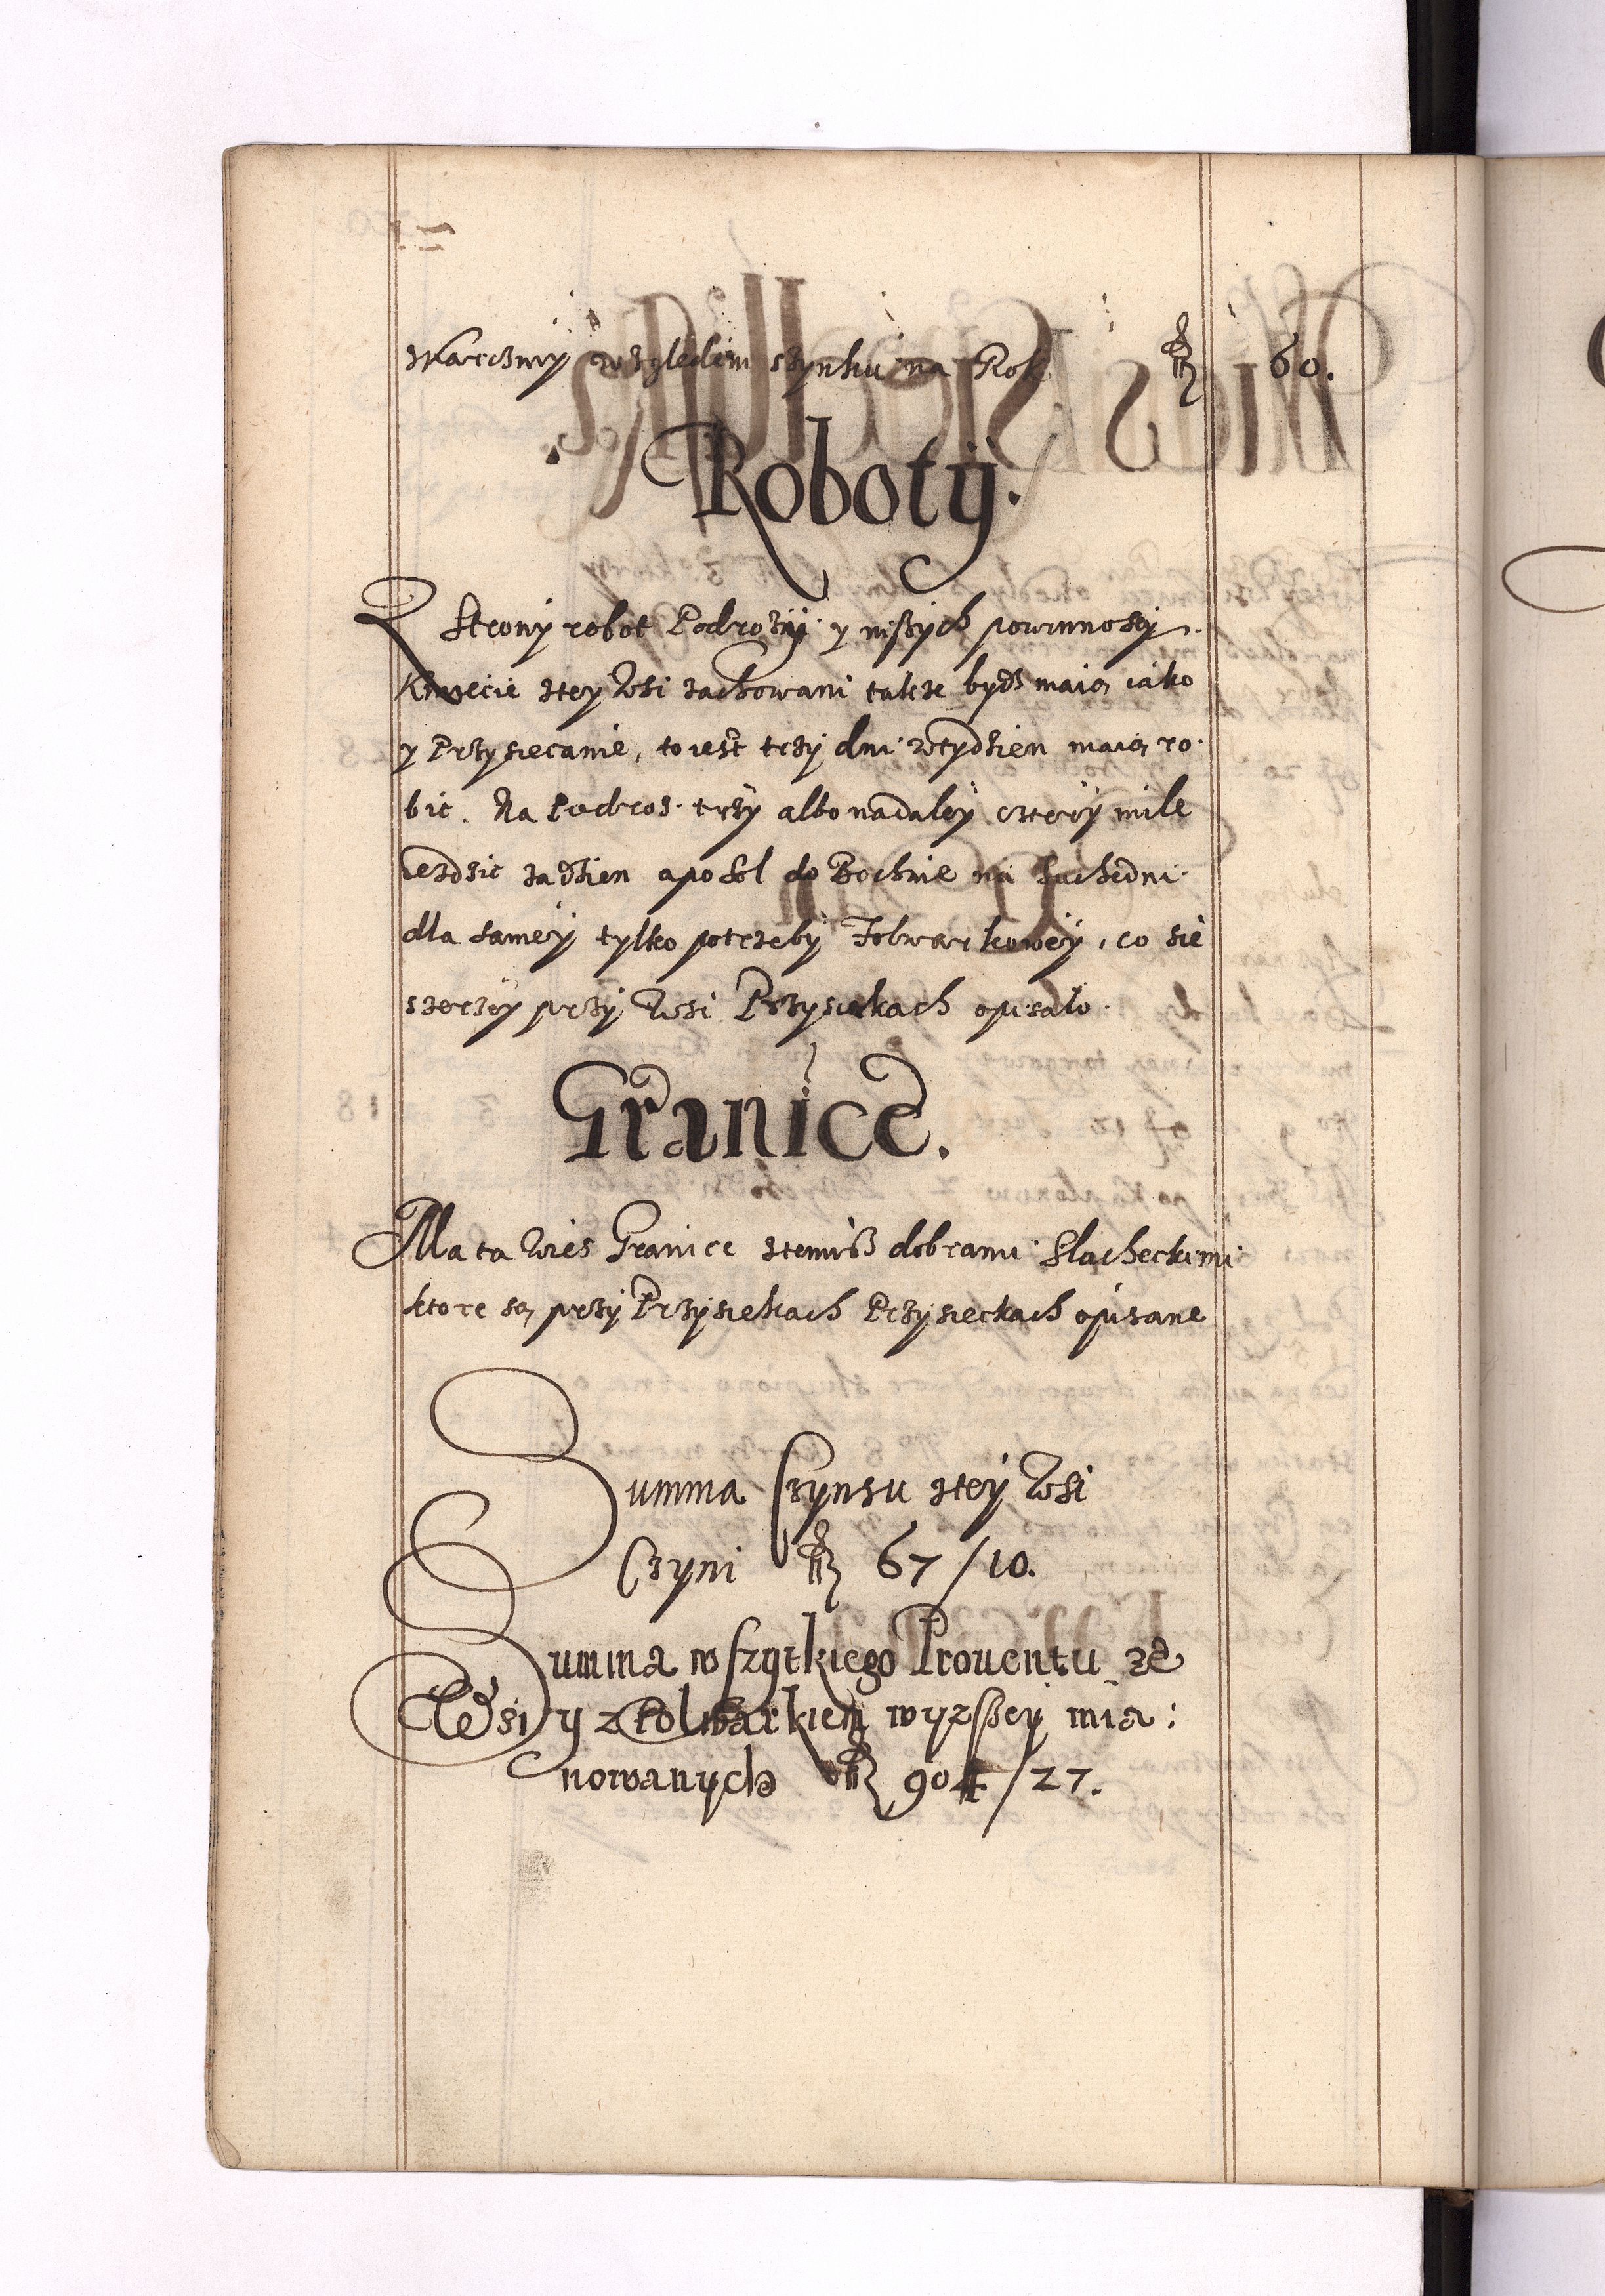 Skarczmy względem szynku na Rok fl 60.
Roboty.
Z Strony robot Podrozy y inszych powinnosci
Kmiecie stey Wsi zachowani takze bydz maią iako
y Przysiecanie, to iest trzy dni wtydzien maią ro.
bic. Na Podroz trzy albo nadaley cztery mile
iezdzic za dzien a po Sol do Bochnie na Suchedni
dla samey tylko potrzeby Folwarkowey, co sie
szerzey przy Wsi Przysiekach opisalo.
Granice.
Ma ta Wies Granice stemisz dobrami Slacheckimi
ktore są przy Przysiekach Przysieckach opisane
Summa Czynsu stey Wsi
Czyni fl 67/10.
Summa wszytkiego Prouentu ze
Wsi y z Folwarkiem wyzszey mia:
nowanych fl 904/27.